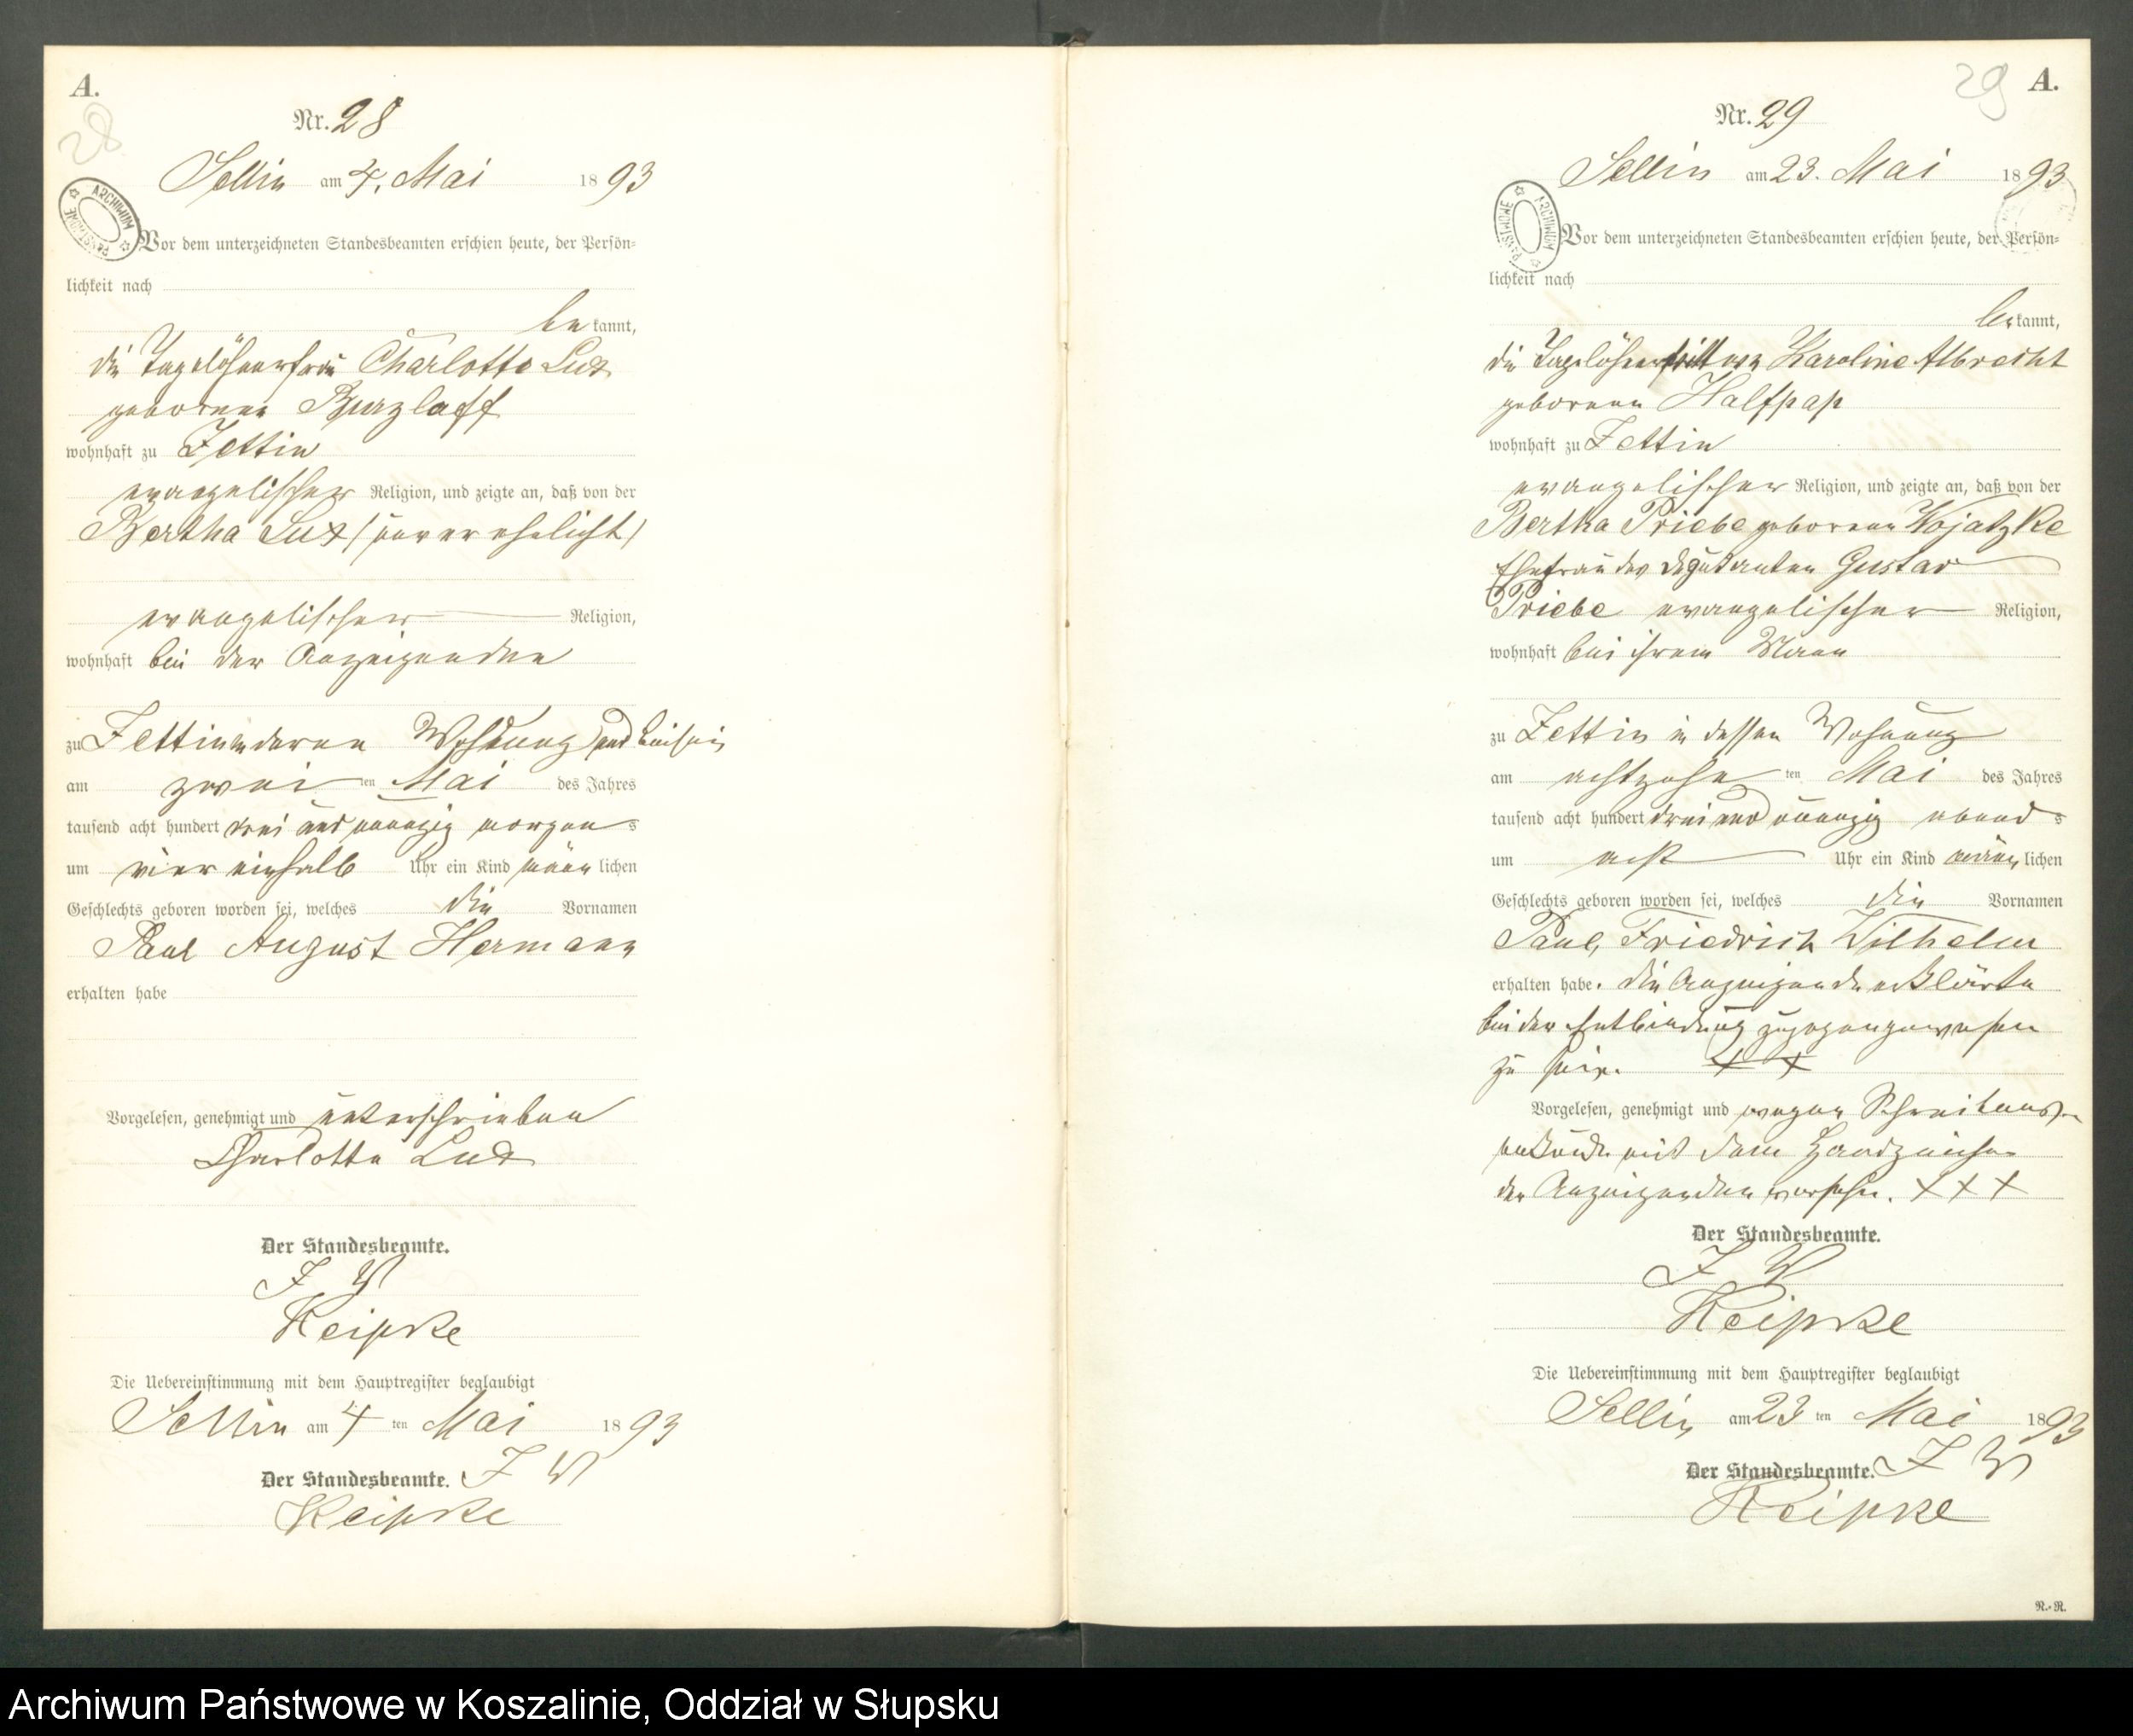 A.
28
Nr. 28
Sellin am 4. Mai 1893
ARCHIWUM PAŃSTWOWE
Vor dem unterzeichneten Standesbeamten erschien heute, der Persön-
lichkeit nach
bekannt,
die Tagelöhnerfrau Charlotte Lux
geborene Burzlaff
wohnhaft zu Zettin
evangelischer Religion, und zeigte an, daß von der
Bertha Lux (unverehelicht)
evangelischer Religion,
wohnhaft bei der Anzeigenden
zu Zettin in deren Wohnung und Beisein
am zweiten Mai des Jahres
tausend acht hundert drei und neunzig morgens
um vier einhalb Uhr ein Kind männlichen
Geschlechts geboren worden sei, welches die Vornamen
Paul August Hermann
erhalten habe
Vorgelesen, genehmigt und unterschrieben
Charlotte Lux
Der Standesbeamte.
I V
Keipke
Die Uebereinstimmung mit dem Hauptregister beglaubigt
Sellin am 4ten Mai 1893
Der Standesbeamte. I V
Keipke
29 A.
Nr. 29
Sellin am 23. Mai 1893
ARCHIWUM PAŃSTWOWE
Vor dem unterzeichneten Standesbeamten erschien heute, der Persön-
lichkeit nach
bekannt,
die Karoline Albrecht
geborene Halfpap
wohnhaft zu Zettin
evangelischer Religion, und zeigte an, daß von der
Bertha Priebe geborene Kojatzke
Ehefrau des Deputanten Gustav
Priebe evangelischer Religion,
wohnhaft bei ihrem Mann
zu Zettin in dessen Wohnung
am achtzehnten Mai des Jahres
tausend acht hundert drei und neunzig abends
um acht Uhr ein Kind männlichen
Geschlechts geboren worden sei, welches die Vornamen
Paul, Friedrich Wilhelm
erhalten habe. die Anzeigende erklärte
bei der Entbindung zugegen gewesen
zu sein.
Vorgelesen, genehmigt und wegen Schreibens un-
kunde mit dem Handzeichen
der Anzeigenden versehen. + + +
Der Standesbeamte.
I V
Keipke
Die Uebereinstimmung mit dem Hauptregister beglaubigt
Sellin am 23ten Mai 1893
Der Standesbeamte. I V
Keipke
R.-R.
Archiwum Państwowe w Koszalinie, Oddział w Słupsku